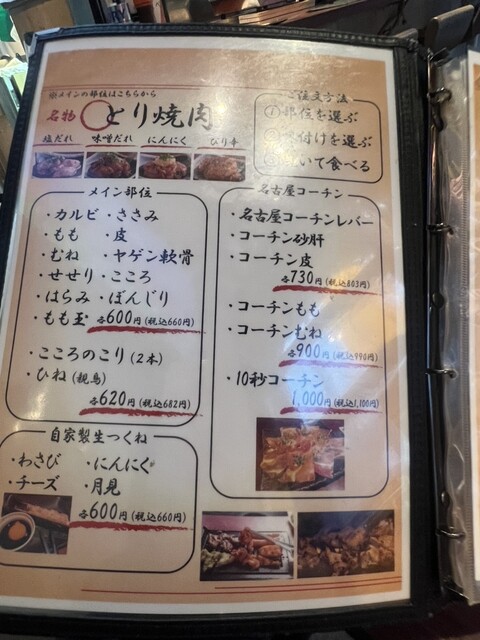 ※メインの部位はこちらから
名物 とり焼肉
塩だれ 味噌だれ にんにく ぴり辛
ご注文方法
① 部位を選ぶ
付けを選ぶ
いて食べる
メイン部位
・カルビ ・ささみ
・もも ・皮
・むね ・ヤゲン軟骨
・せせり ・こころ
・はらみ ・ぼんじり
・もも 各600円(税込660円)
・こころのこり(2本)
・ひね(親鳥)
各620円(税込682円)
自家製生つくね
・わさび ・にんにく
・チーズ ・月見
各600円(税込660円)
名古屋コーチン
・名古屋コーチンレバー
・コーチン砂肝
・コーチン皮
各730円(税込803円)
・コーチンもも
・コーチンむね
各900円(税込990円)
・10秒コーチン
1,000円(税込1,100円)